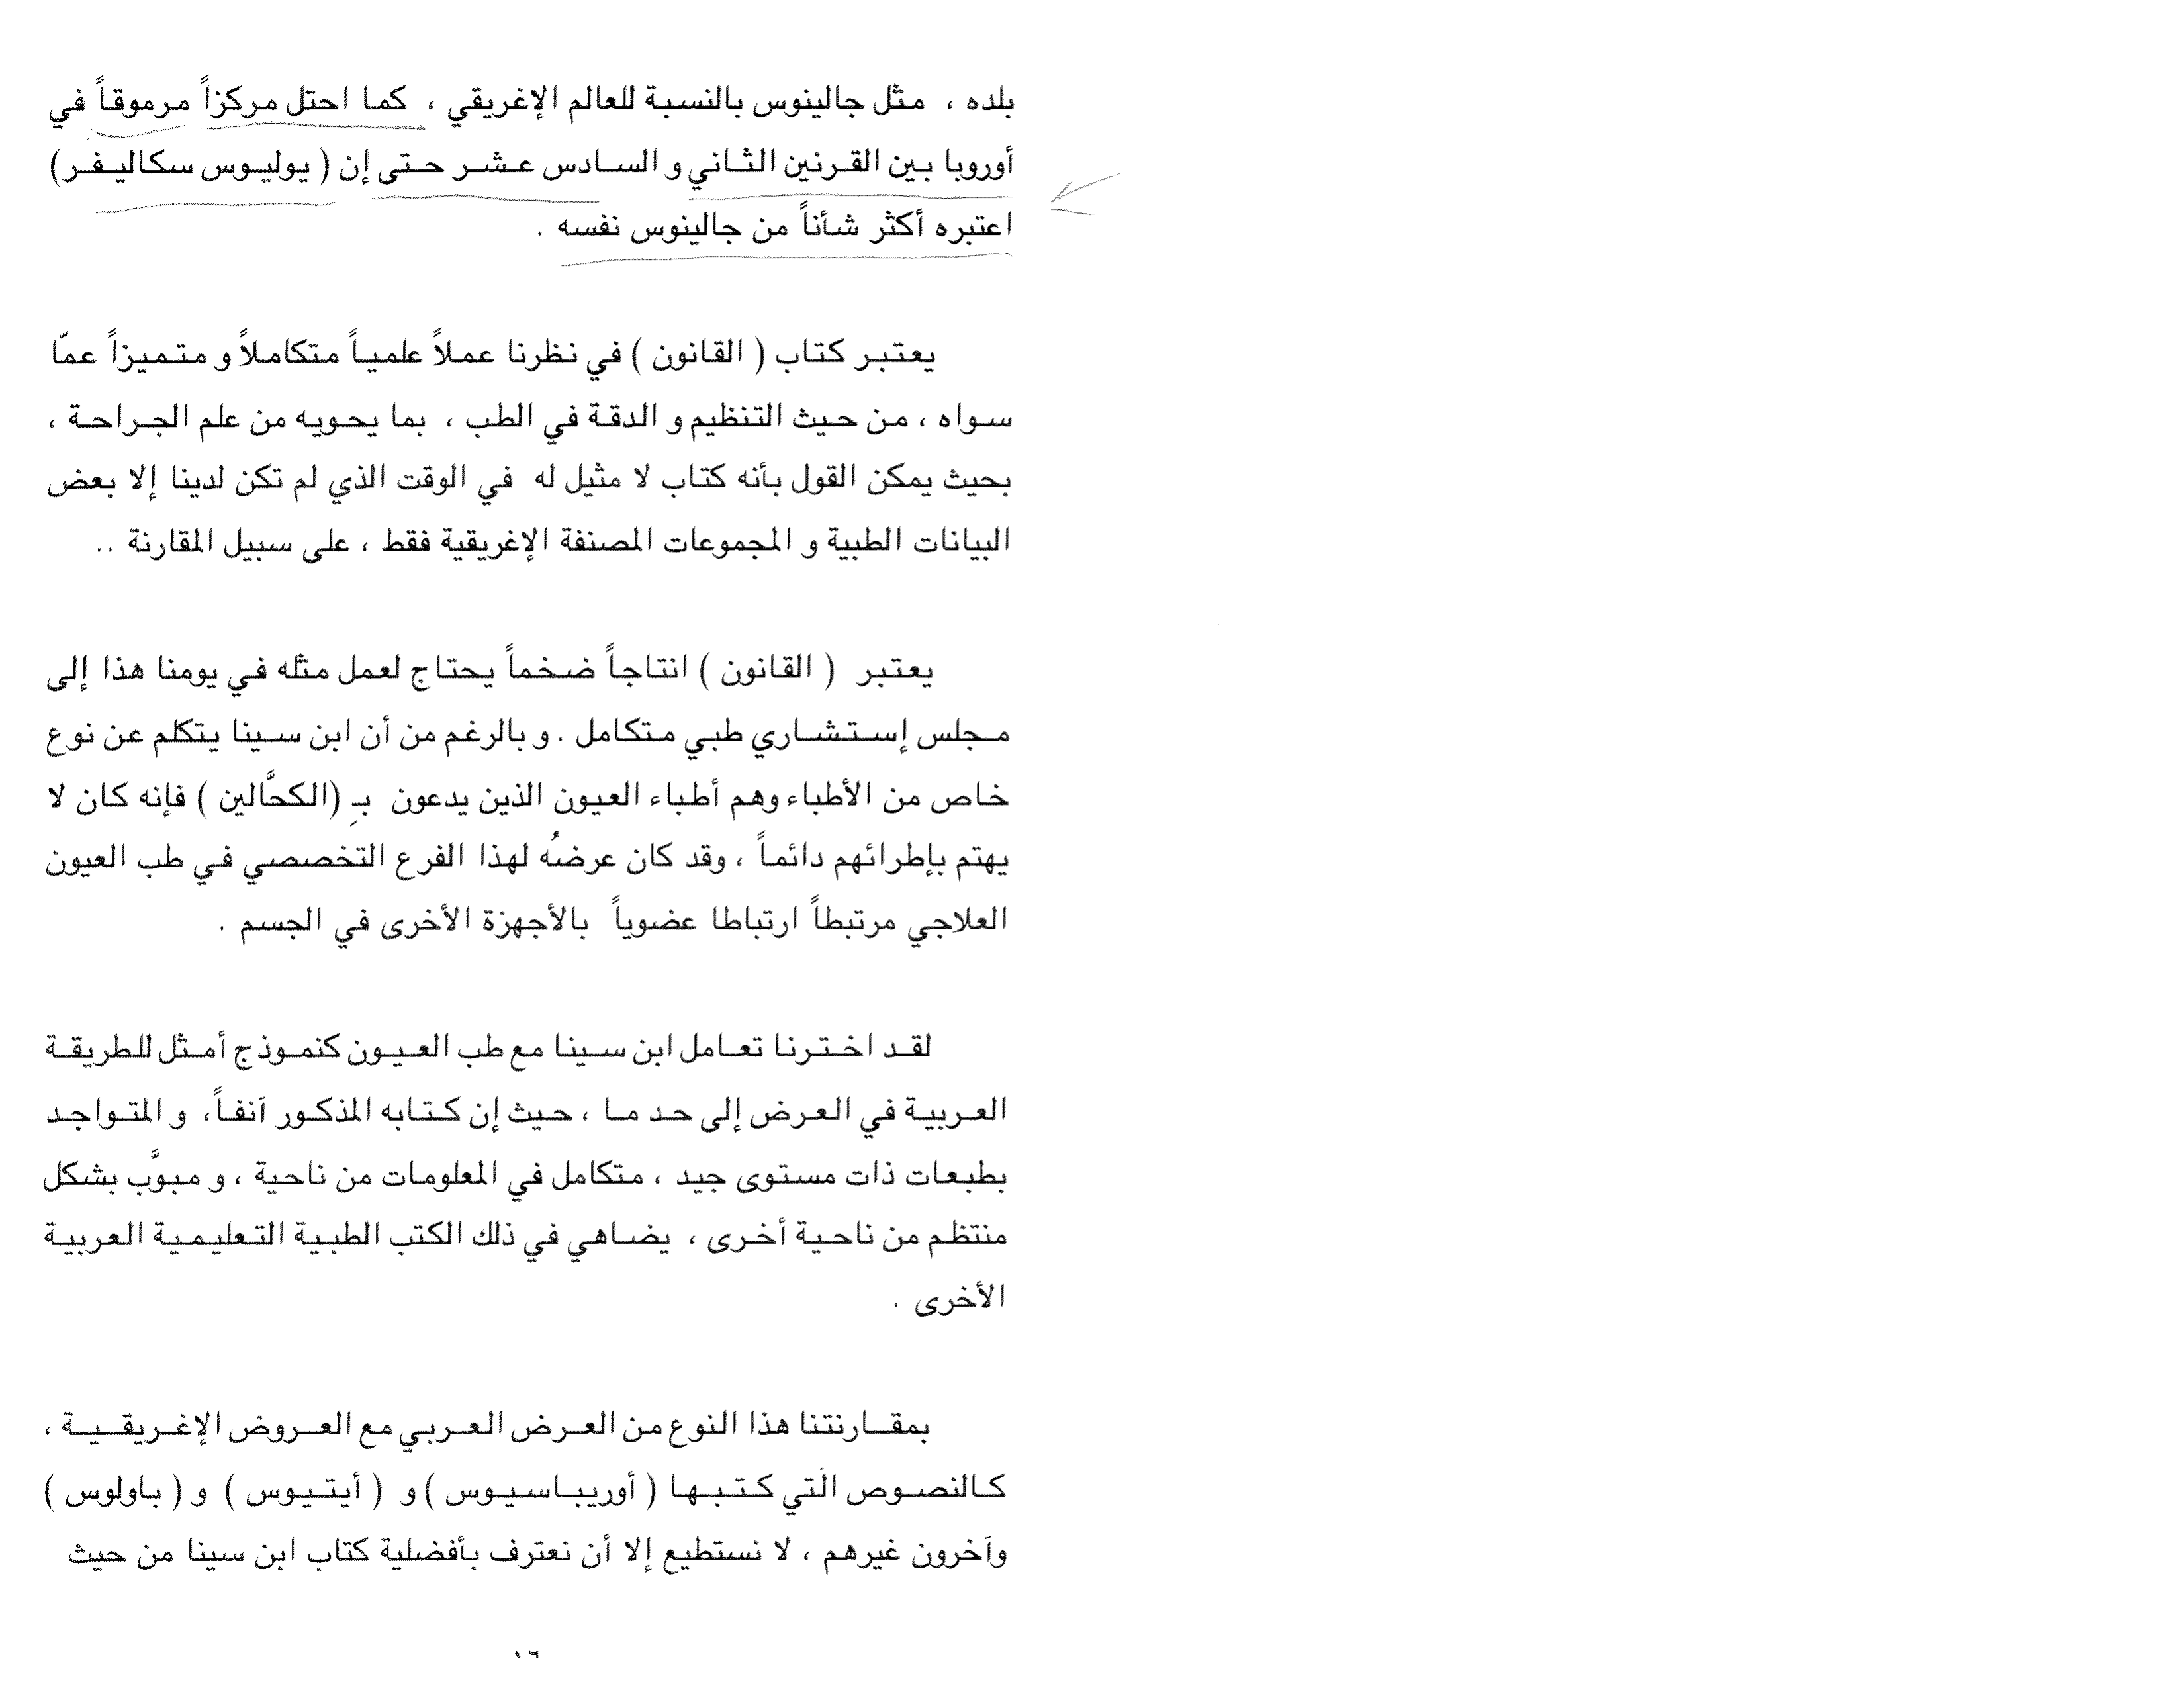 بلده ، مثل جالينوس بالنسبة للعالم الإغريقي ، كما احتل مركزاً مرموقاً في
أوروبا بين القرنين الثاني و السادس عشر حتى إن ( يوليوس سكاليفر)
اعتبره أكثر شأناً من جالينوس نفسه .
يعتبر كتاب ( القانون ) في نظرنا عملاً علمياً متكاملاً و متميزاً عمّا
سواه ، من حيث التنظيم و الدقة في الطب ، بما يحويه من علم الجراحة ،
بحيث يمكن القول بأنه كتاب لا مثيل له في الوقت الذي لم تكن لدينا إلا بعض
البيانات الطبية و المجموعات المصنفة الإغريقية فقط ، على سبيل المقارنة ..
يعتبر ( القانون ) انتاجاً ضخماً يحتاج لعمل مثله في يومنا هذا إلى
مجلس إستشاري طبي متكامل . و بالرغم من أن ابن سينا يتكلم عن نوع
خاص من الأطباء وهم أطباء العيون الذين يدعون بـِ (الكحَّالين ) فإنه كان لا
يهتم بإطرائهم دائماً ، وقد كان عرضُه لهذا الفرع التخصصي في طب العيون
العلاجي مرتبطاً ارتباطا عضوياً بالأجهزة الأخرى في الجسم .
لقد اخترنا تعامل ابن سينا مع طب العيون كنموذج أمثل للطريقة
العربية في العرض إلى حد ما ، حيث إن كتابه المذكور آنفاً، و المتواجد
بطبعات ذات مستوى جيد ، متكامل في المعلومات من ناحية ، و مبوَّب بشكل
منتظم من ناحية أخرى ، يضاهي في ذلك الكتب الطبية التعليمية العربية
الأخرى .
بمقارنتنا هذا النوع من العرض العربي مع العروض الإغريقية ،
كالنصوص الَتي كتبها ( أوريباسيوس ) و ( أيتيوس ) و ( باولوس )
وآخرون غيرهم ، لا نستطيع إلا أن نعترف بأفضلية كتاب ابن سينا من حيث
١٦